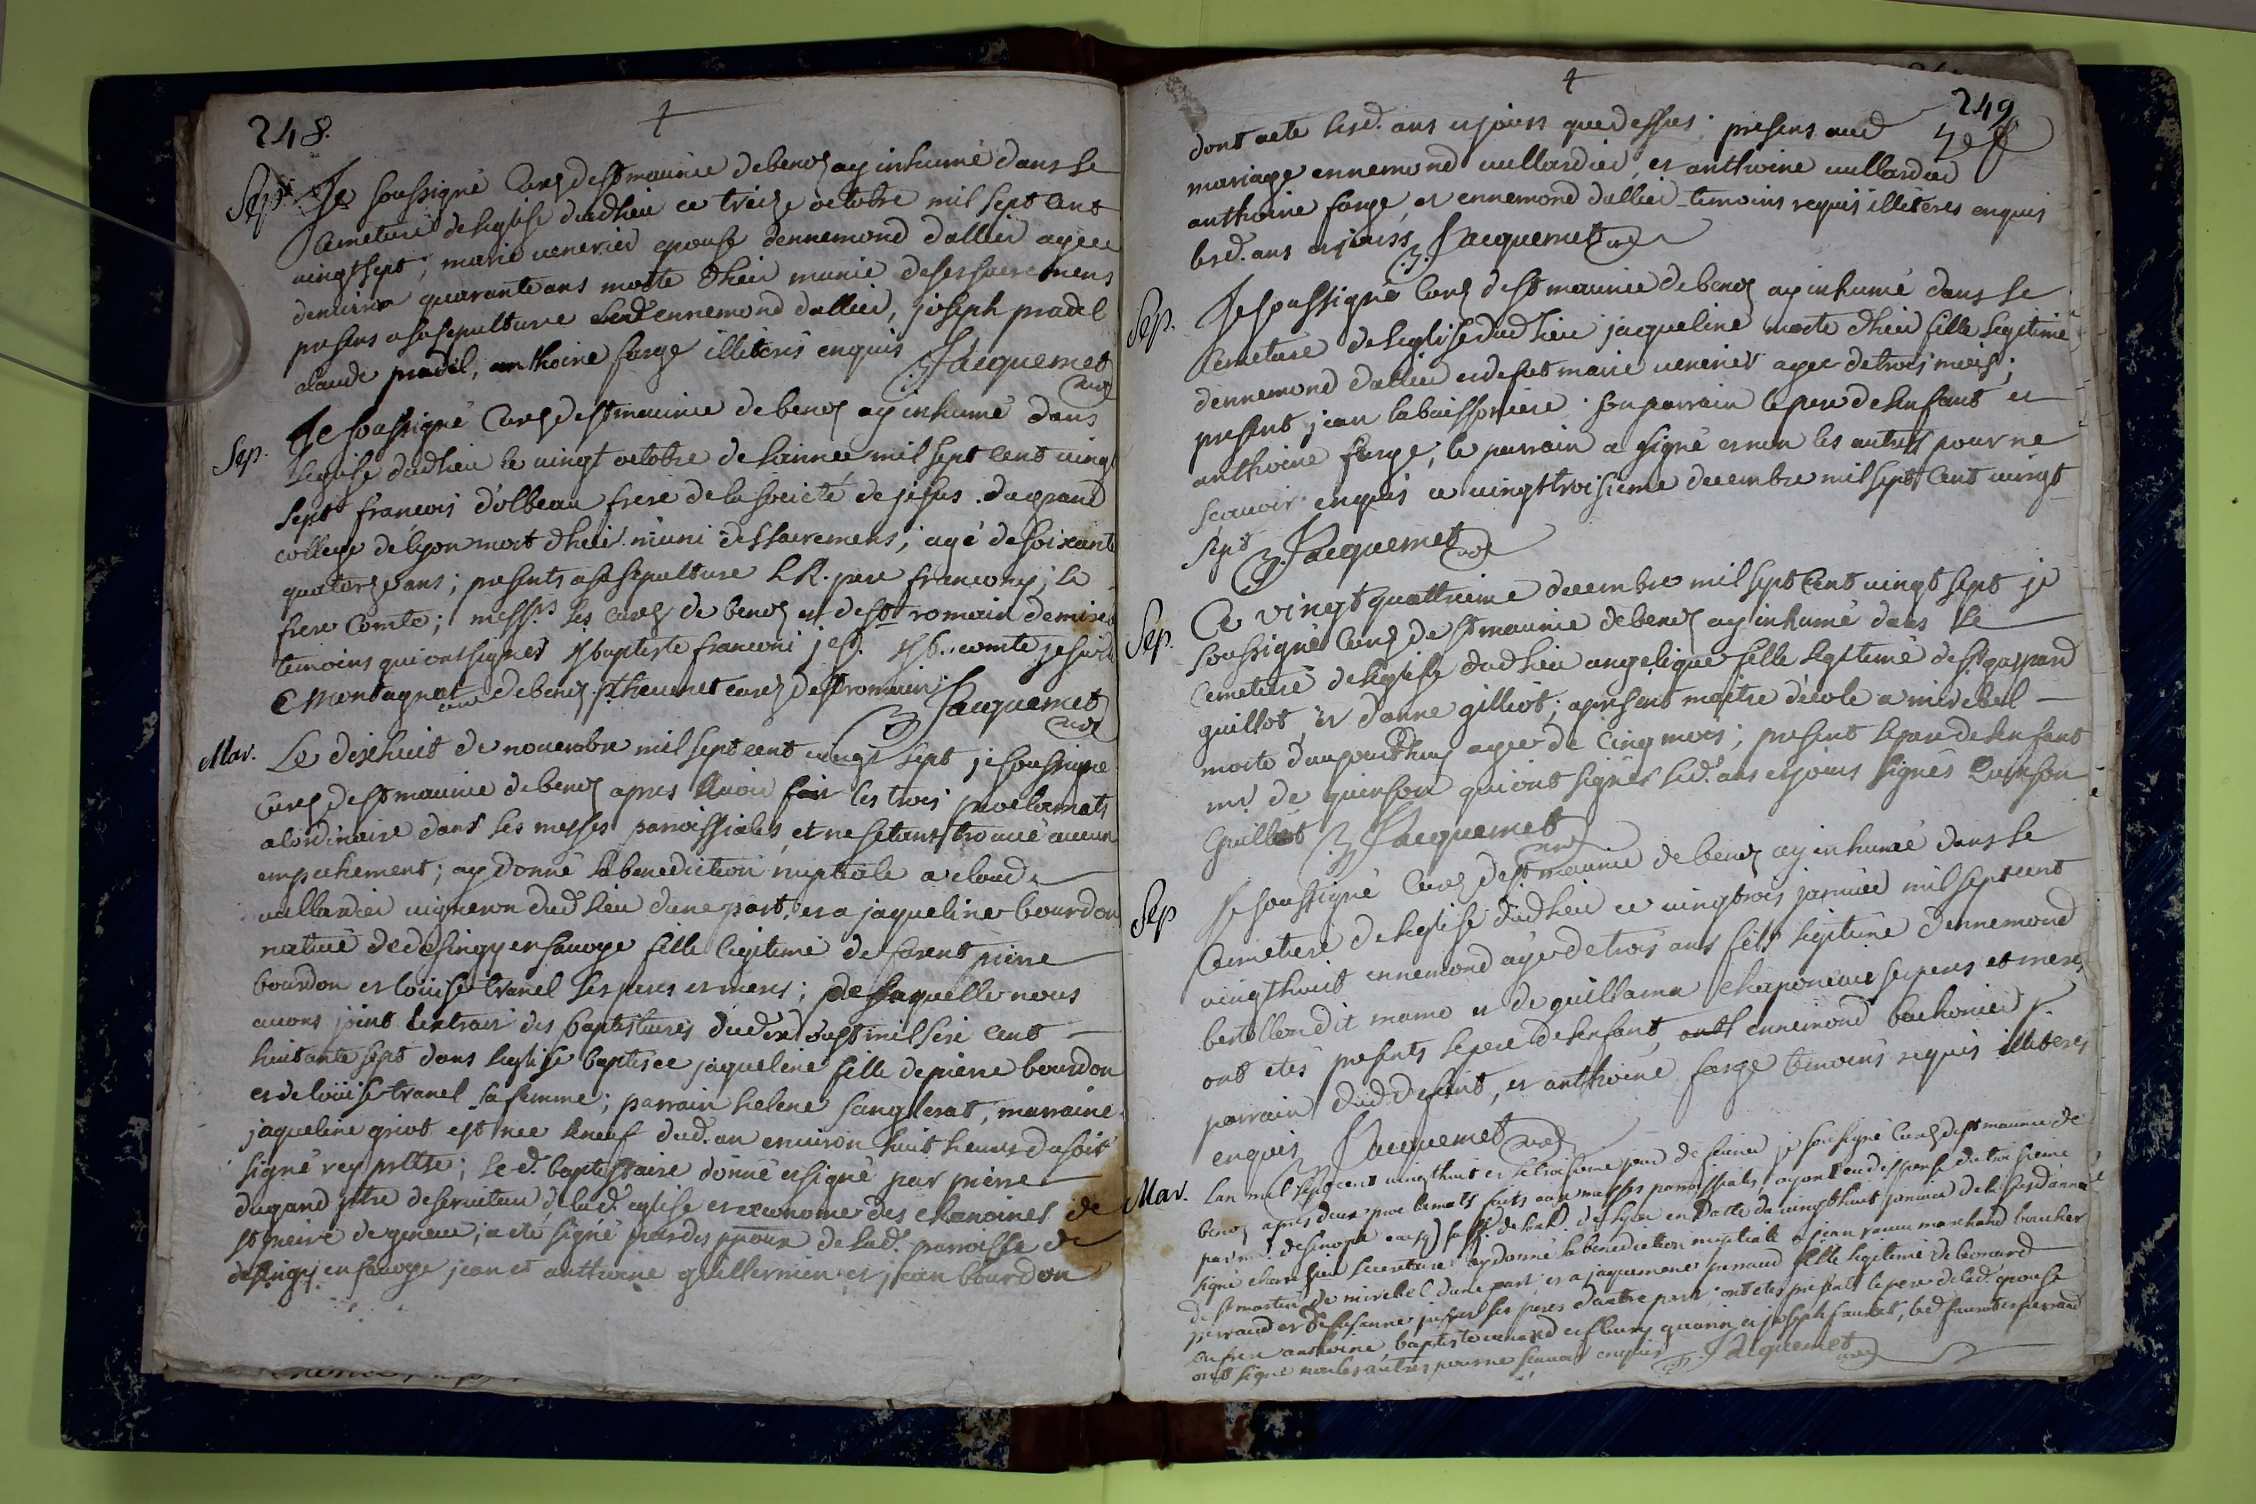 248.
Sep. Je soussigné Curé de St maurice de benoz ay inhumé dans le
Cemetiere de leglise dud lieu ce treize octobre mil sept Cent
vingt sept, marie venerier epouse dennemond dallier agee
denviron quarante ans morte d'hier munie de ses sacremens
presens a sa sepulture led ennemond dallier, joseph pradel
claude pradel, anthoine farge illiterés enquis Jacquemet
curé
Sep. Je soussigné Curé de St maurice de benoz ay inhumé dans
leglise dud lieu le vingt octobre de lannee mil sept Cent vingt
sept francois dolbeau frere de la societé de jesus du grand
college de lyon mort d'hier muni des sacremens, agé de soixante
quatorze ans; presents a sa sepulture le R. pere francony; le
frere Comte; mess.rs les curés de benoz et de St romain de miribel
temoins qui ont signés baptiste franconi jes. comte jesuite
C Montagnat curé de benoz, Thevenet curé de St romain; Jacquemet
curé
Mar. Le dixhuit de novembre mil sept cent vingt sept je soussigné
Curé de St maurice de benoz apres avoir fait les trois proclamats
a lordinaire dans les messes paroissiales, et ne setant trouvé aucun
empechement; ay donné la benediction nuptiale a claude
vullardier vigneron dud lieu dune part, et a jaqueline bourdon
native de desingy en savoye fille legitime de pierre
bourdon et loüise tranel ses peres et meres; de laquelle nous
avons joint lextrait des baptistaires dud. aoust mil six cent
huitante sept dans leglise baptisée jaqueline fille de pierre bourdon
et de loüise tranel sa femme; parrain helene sanglerat, marraine
jaqueline griot est nee le neuf dud. an environ huit heures du soir
signé rey pretre; le d. baptistaire donné et signé par pierre
dugand ptre deserviteur de lad. eglise et econome des chanoines de
St pierre de geneve; a eté signé par des de lad. parroisse de
desingy en savoye jean et anthoine guillermin et jean bourdon
249
dont acte lesd. ans et jours que dessus. presens aud
mariage ennemond vullardier, et anthoine vullardier
anthoine farge, et ennemond dallier temoins requis illiteres enquis
lesd. ans et jours Jacquemet curé
Sep. Je soussigné Curé de St maurice de benoz ay inhumé dans le
Cemetiere de leglise dud lieu jaqueline morte d'hier fille legitime
dennemond dallier et de fut marie venerier agee de trois mois;
present jean labaissoniere son parrain le pere de lenfant et
anthoine farge, le parrain a signé et non les autres pour ne
scavoir enquis ce vingt troisieme decembre mil sept Cent vingt
sept Jacquemet curé
Sep. Ce vingt quattrieme decembre mil sept Cent vingt sept je
soussigné Curé de St maurice de benoz ay inhumé dans le
Cemetiere de leglise dud lieu angelique fille legitime de Sr gaspard
guillot, et danne gilliot; apresent maitre d'ecole a miribel
morte daujourdhuy agee de Cinq mois; present le pere de lenfant
mr. de quinson qui ont signés les d. ans et jours signés Quinson
Guillot Jacquemet curé
Sep Je soussigné Curé de St maurice de benoz ay inhumé dans le
Cemetiere de leglise dud lieu ce vingtrois janvier mil sept cent
vingt huit ennemond agé de trois ans fils legitime dennemond
bertellon dit mamo et de guillama chaponeaue ses peres et meres
ont etés presents le pere de lenfant, ennemond bachonier
parrain dud defunt, et anthoine farge temoins requis illiteres
enquis Jacquemet curé
Mar. Lan mil sept cent vingt huit et le troisieme jour de fevrier je soussigné Curé de St maurice de
benoz apres deux proclamats faits aux messes paroissiales ayant eu dispense du troisieme
par mr. de sinope de lyon en datte du vingt huit janvier
signé secretaire ay donné la benediction nuptiale a jean marchand boucher
de St martin de miribel dune part, et a jaquemene perraud fille legitime de leonard
perraud et de susanne ses peres d'autre part; ont etes presents le pere de lad. epouse
son frere anthoine, baptiste et joseph sauvet, led sauvet et perraud
ont signé non les autres pour ne scavoir enquis Jacquemet curé